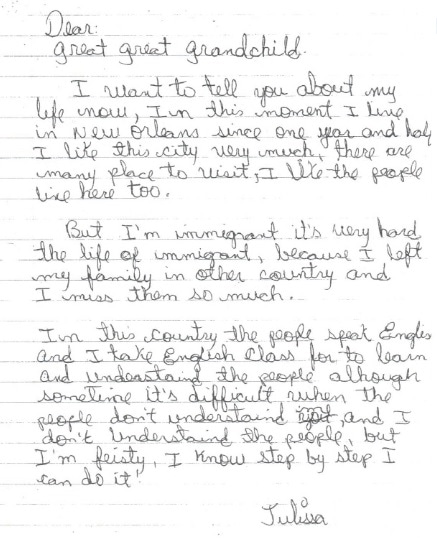 Dear:
great great grandchild.
I want to tell you about my
life now, In this moment I live
in New Orleans since one year and half
I like this city very much, there are
many place to visit, I like the people
live here too.
But I'm immigrant it's very hard
the life of immigrant, because I left
my family in other country and
I miss them so much.
In this country the people speak Englis
and I take English Class for to learn
and understaind the people alhough
sometime it's difficult when the
people don't understaind, and I
don't understaind the people, but
I'm feisty, I know step by step I
can do it!
Julissa